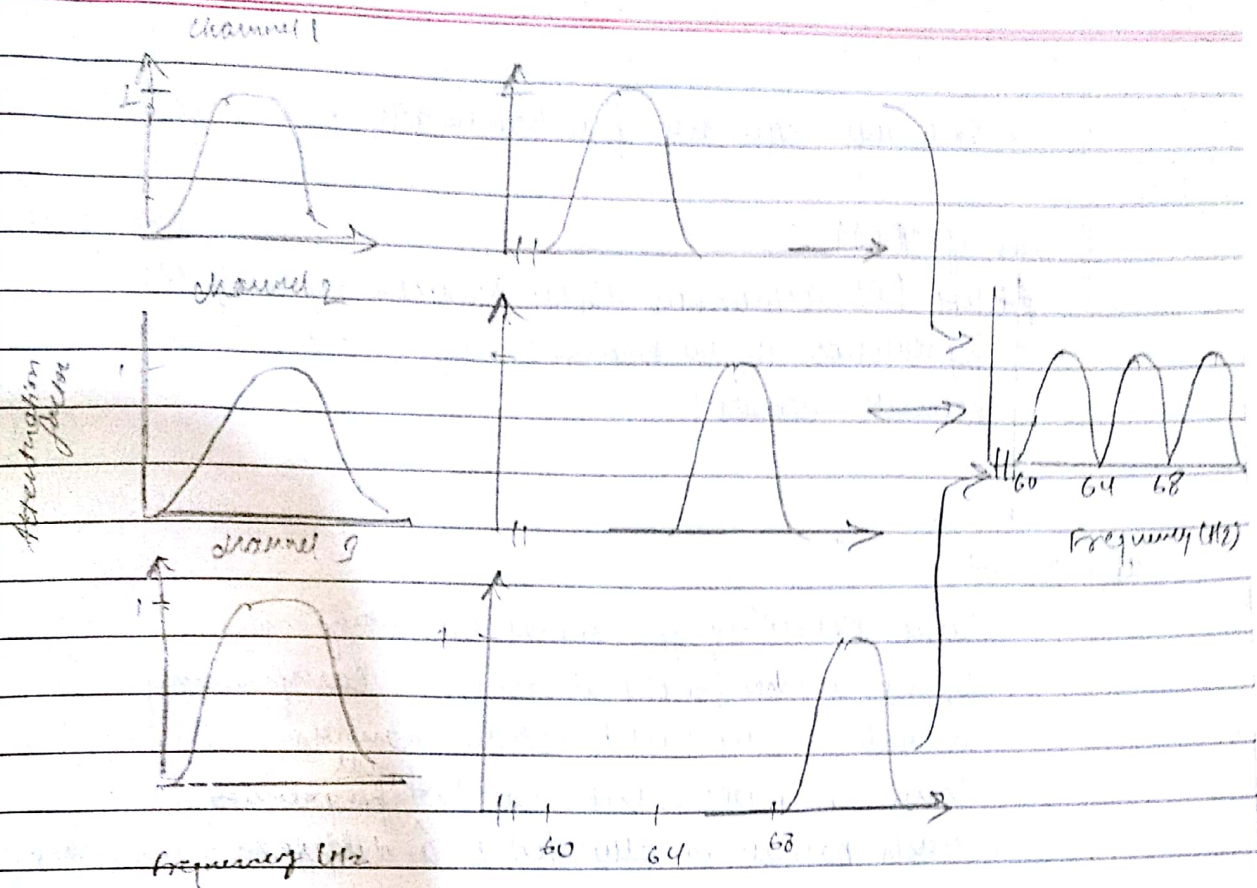 Channel 1
1
Channel 2
1
Attenuation
factor
Channel 3
1
1
60 64 68
Frequency (Hz
60 64 68
Frequency (Hz)